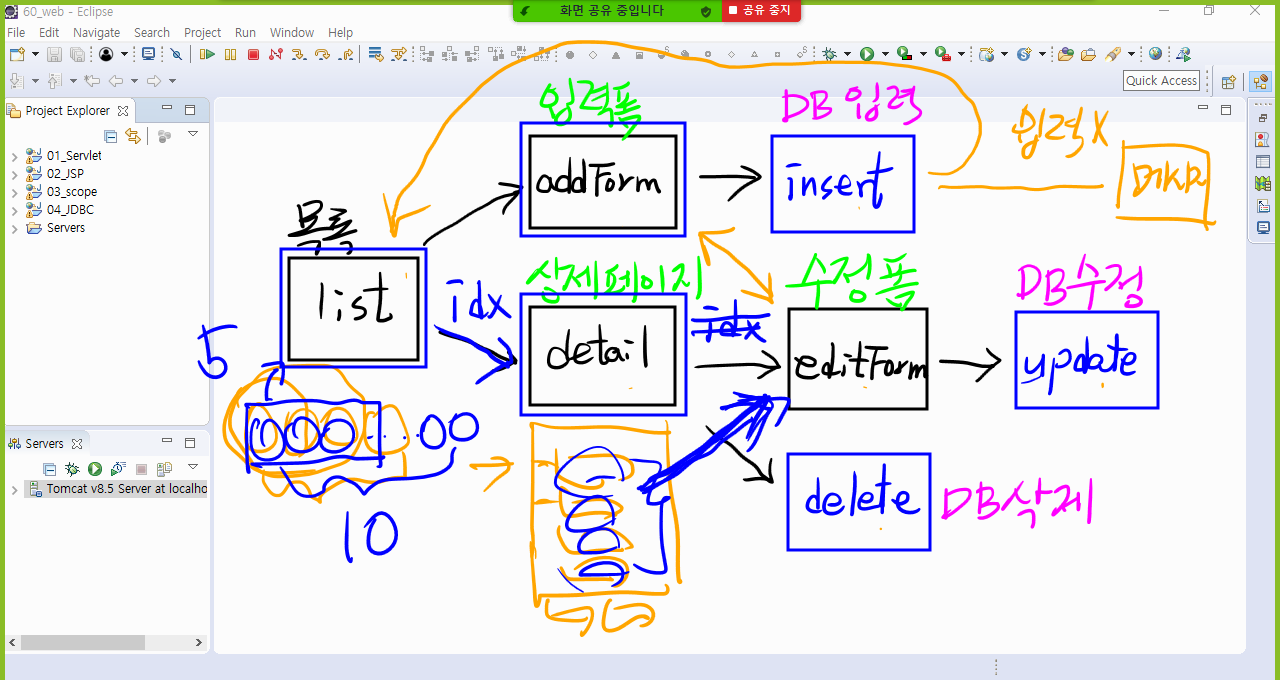 60_web - Eclipse
화면 공유 중입니다
공유 중지
File Edit Navigate Search Project Run Window Help
Quick Access
Project Explorer
01_Servlet
02_JSP
03_scope
04_JDBC
Servers
Servers
Tomcat v8.5 Server at localho
입력폼
DB 입력
입력X
addForm
insert
목록
list
idx
상세페이지
수정폼
DB수정
detail
idx
editForm
update
5
10
delete
DB삭제